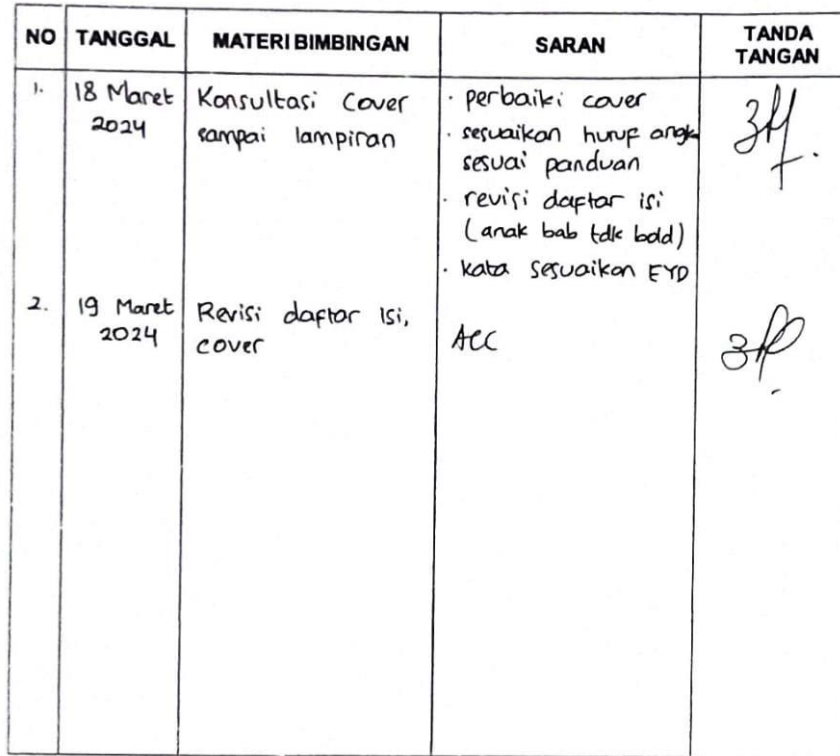 NO TANGGAL MATERI BIMBINGAN SARAN TANDA TANGAN
1. 18 Maret 2024
Konsultasi Cover
sampai lampiran
· perbaiki cover
· sesuaikan huruf angk
sesuai panduan
· revisi daftar isi
(anak bab tdk bold)
· kata sesuaikan EYD
2. 19 Maret 2024
Revisi daftar Isi,
cover
ACC